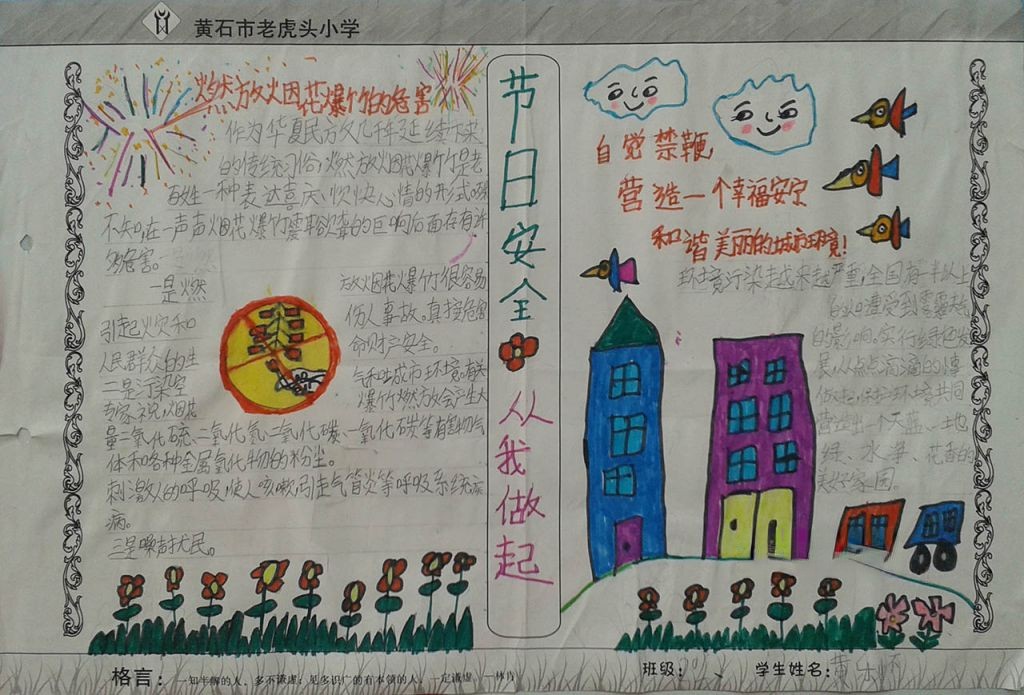 黄石市老虎头小学
燃放烟花爆竹的危害
作为华夏民族几千年延续下来
的传统习俗,燃放烟花爆竹是老
百姓一种表达喜庆、欢快心情的形式。殊
不知,在一声声烟花爆竹震耳欲聋的巨响后面存有许
多危害。
一是燃放烟花爆竹很容易
引起火灾和伤人事故。直接危害
人民群众的生命财产安全。
二是污染空气和
专家说,烟花爆竹燃放会产生大
量二氧化硫、二氧化氮、二氧化碳、一氧化碳等有害的气
体和各种金属氧化物的粉尘。
刺激人的呼吸,使人咳嗽,引起气管炎等呼吸系统疾
病。
三是噪声扰民。
节日安全
从我做起
自觉禁鞭
营造一个幸福安定
和谐美丽的城市环境!
环境污染越来越严重,全国有一半以上
的影响。实行绿色发
展,从点点滴滴的
做起,保护环境共同
营造出一个天蓝、土地
绿、水净、花香的
美好家园。
格言:一知半解的人,多不谦虚;见多识广的有本领的人,一定谦虚。
班级:
学生姓名: